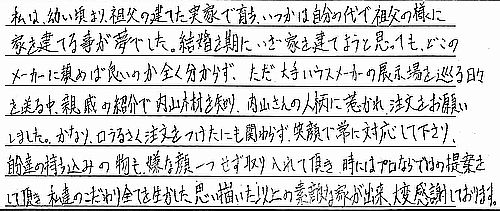 私は、幼い頃より、祖父の建てた実家で育ち、いつかは自分の代で祖父の様に
家を建てる事が夢でした。結婚を期にいざ家を建てようと思っても、どこの
メーカーに頼めば良いのか全く分からず、ただ大手ハウスメーカーの展示場を巡る日々
を送る中、親戚の紹介で内山木材を知り、内山さんの人柄に惹かれ、注文をお願い
しました。かなり、口うるさく注文をつけたにも関わらず、笑顔で常に対応して下さり、
私達の持ち込みの物も、嫌な顔一つせず取り入れて頂き、時にはプロならではの提案を
して頂き、私達のこだわり全てを生かした、思い描いた以上の素敵な家が出来、大変感謝しております。